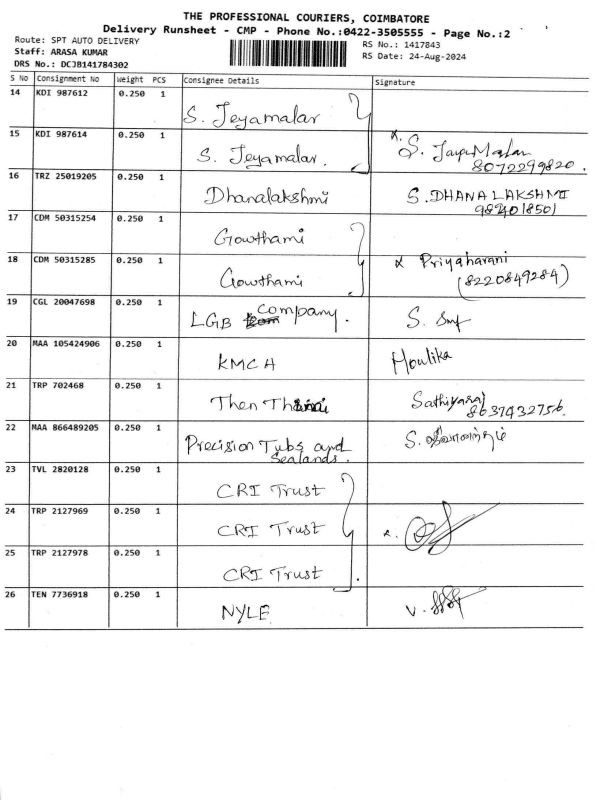 THE PROFESSIONAL COURIERS, COIMBATORE
Delivery Runsheet - CMP - Phone No.:0422-3505555 - Page No.:2
Route: SPT AUTO DELIVERY
Staff: ARASA KUMAR
DRS No.: DCJB141784302
RS No.: 1417843
RS Date: 24-Aug-2024
S No Consignment No Weight PCS Consignee Details Signature
14 KDI 987612 0.250 1 S. Jeyamalar
15 KDI 987614 0.250 1 S. Jeyamalar. x S.
8072299820.
16 TRZ 25019205 0.250 1 Dhanalakshmi S. DHANALAKSHMI
982401850
17 CDM 50315254 0.250 1 Gowthami
18 CDM 50315285 0.250 1 Gowthami x Priyaharani
(8220849284)
19 CGL 20047698 0.250 1 LGB company. S.
20 MAA 105424906 0.250 1 KMCH Moulika
21 TRP 702468 0.250 1 Then Sathiyaraj
8637432756.
22 MAA 866489205 0.250 1 Precision Tubs and
Sealands. S.
23 TVL 2820128 0.250 1 CRI Trust
24 TRP 2127969 0.250 1 CRI Trust x.
25 TRP 2127978 0.250 1 CRI Trust
26 TEN 7736918 0.250 1 NYLE V.